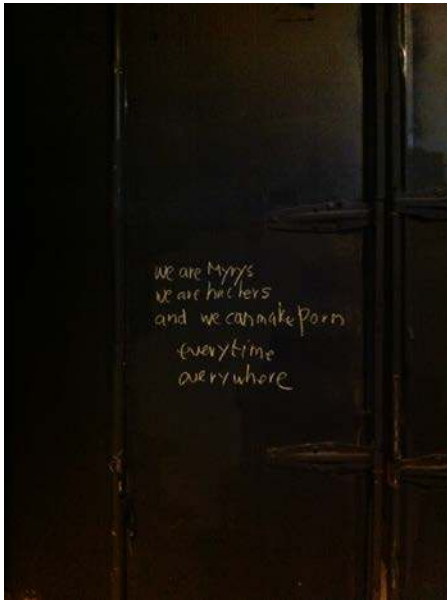 we are Myrys
we are hackers
and we can make porn
everytime
everywhere